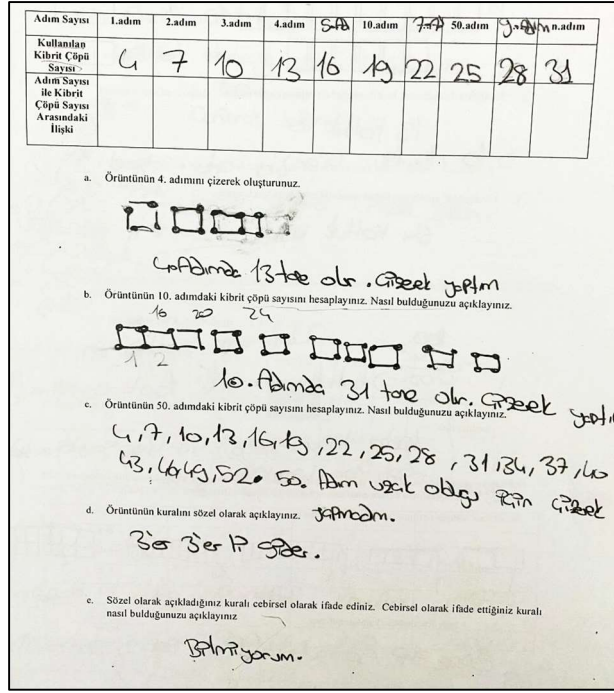 Adım Sayısı 1.adım 2.adım 3.adım 4.adım 10.adım 50.adım n.adım
Kullanılan
Kibrit Çöpü
Sayısı
4 7 10 13 16 19 22 25 28 31
Adım Sayısı
ile Kibrit
Çöpü Sayısı
Arasındaki
İlişki
a. Örüntünün 4. adımını çizerek oluşturunuz.
4.Adımda 13 tane olur. Çizerek yaptım
b. Örüntünün 10. adımdaki kibrit çöpü sayısını hesaplayınız. Nasıl bulduğunuzu açıklayınız.
16 20 24
1 2
10. Adımda 31 tane olur. Çizerek yaptım
c. Örüntünün 50. adımdaki kibrit çöpü sayısını hesaplayınız. Nasıl bulduğunuzu açıklayınız.
4,7,10,13,16,19,22,25,28,31,34,37,40
43,46,49,52. 50. Adım uzak olduğu için çizerek
d. Örüntünün kuralını sözel olarak açıklayınız. yapmadım.
3'er 3'er gider.
e. Sözel olarak açıkladığınız kuralı cebirsel olarak ifade ediniz. Cebirsel olarak ifade ettiğiniz kuralı
nasıl bulduğunuzu açıklayınız
Bilmiyorum.